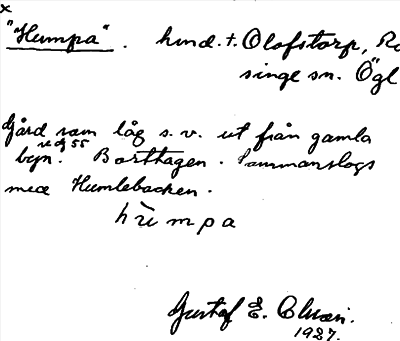 x
"Humpa". hmd. t. Olofstorp, R
singe sn. Ögl
Gård som låg s. v. ut från gamla
byn. Borttagen. Sammanslogs
med Humlebacken.
hùmpa
Gustaf E.
1927.